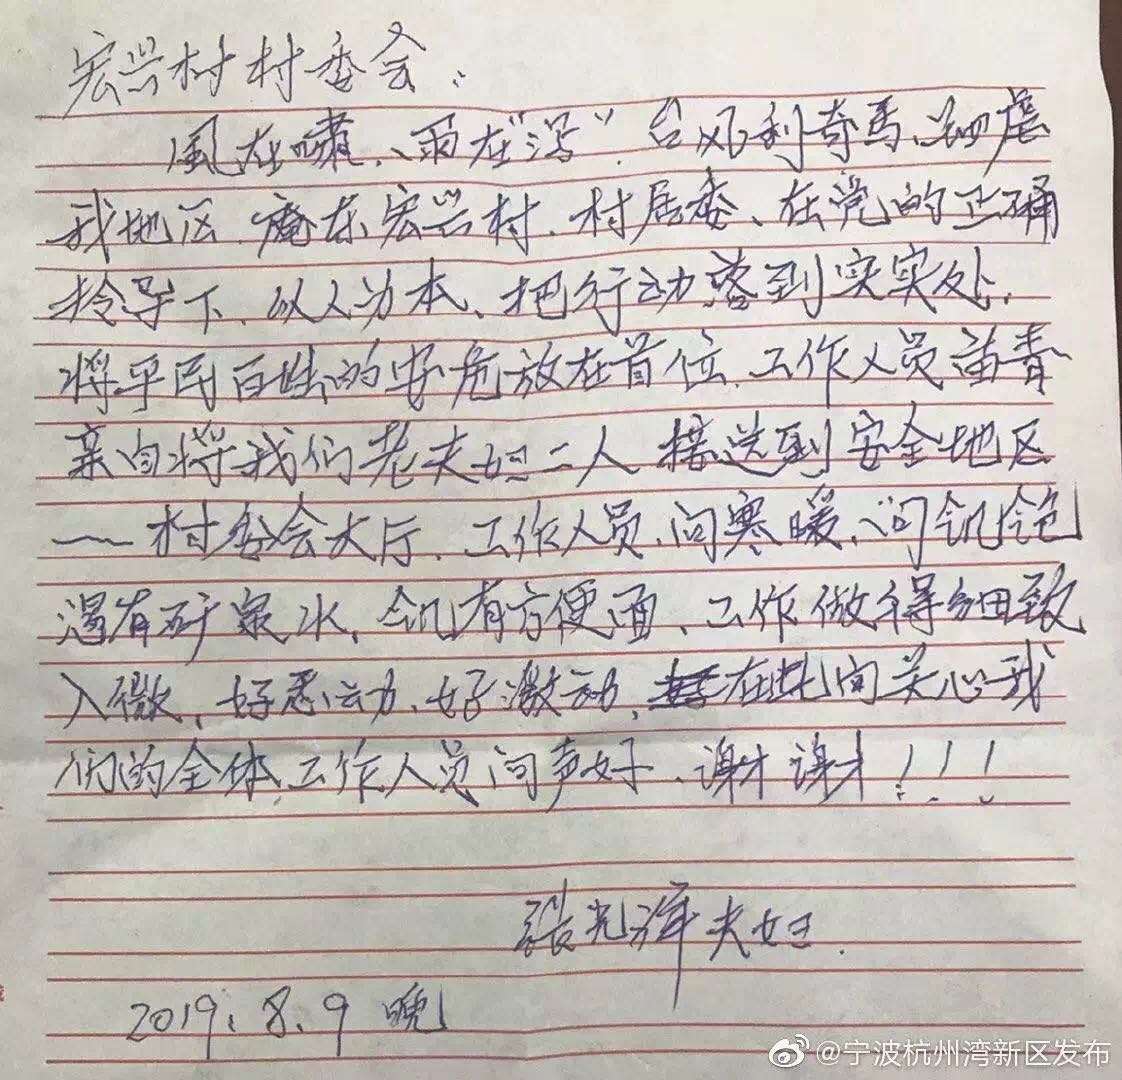 宏兴村村委会：
風在啸、雨在“泻”。台风利奇马、肆虐
我地区，庵东宏兴村，村居委、在党的正确
领导下、以人为本、把行动落到实实处、
将平民百姓的安危放在首位、工作人员苗青
亲自将我们老夫妇二人 接送到安全地区
——村委会大厅、工作人员、问寒暖、问饥饱
渴有矿泉水、饥有方便面、工作做得细致
入微、好感动、好激动、在此间关心我
们的全体工作人员问声好、谢谢！！！
张光泽夫妇.
2019.8.9 晚
@宁波杭州湾新区发布